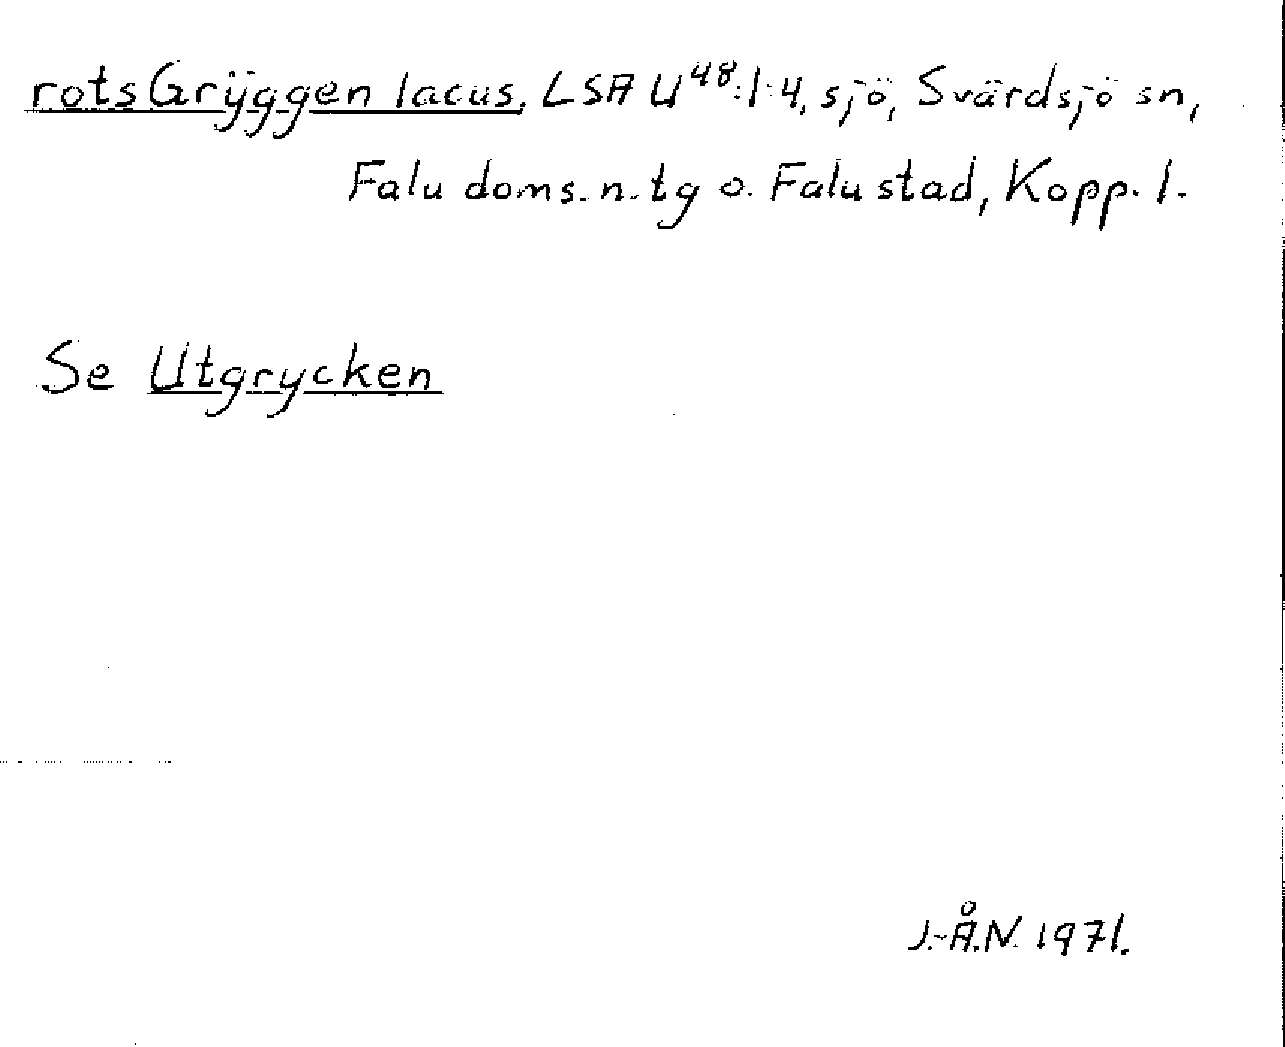 rotsGrÿggen lacus, LSA U⁴⁸:1:4, sjö, Svärdsjö sn,
Falu doms. n. tg o. Falu stad, Kopp. l.
Se Utgrycken
J.-Å.N. 1971.